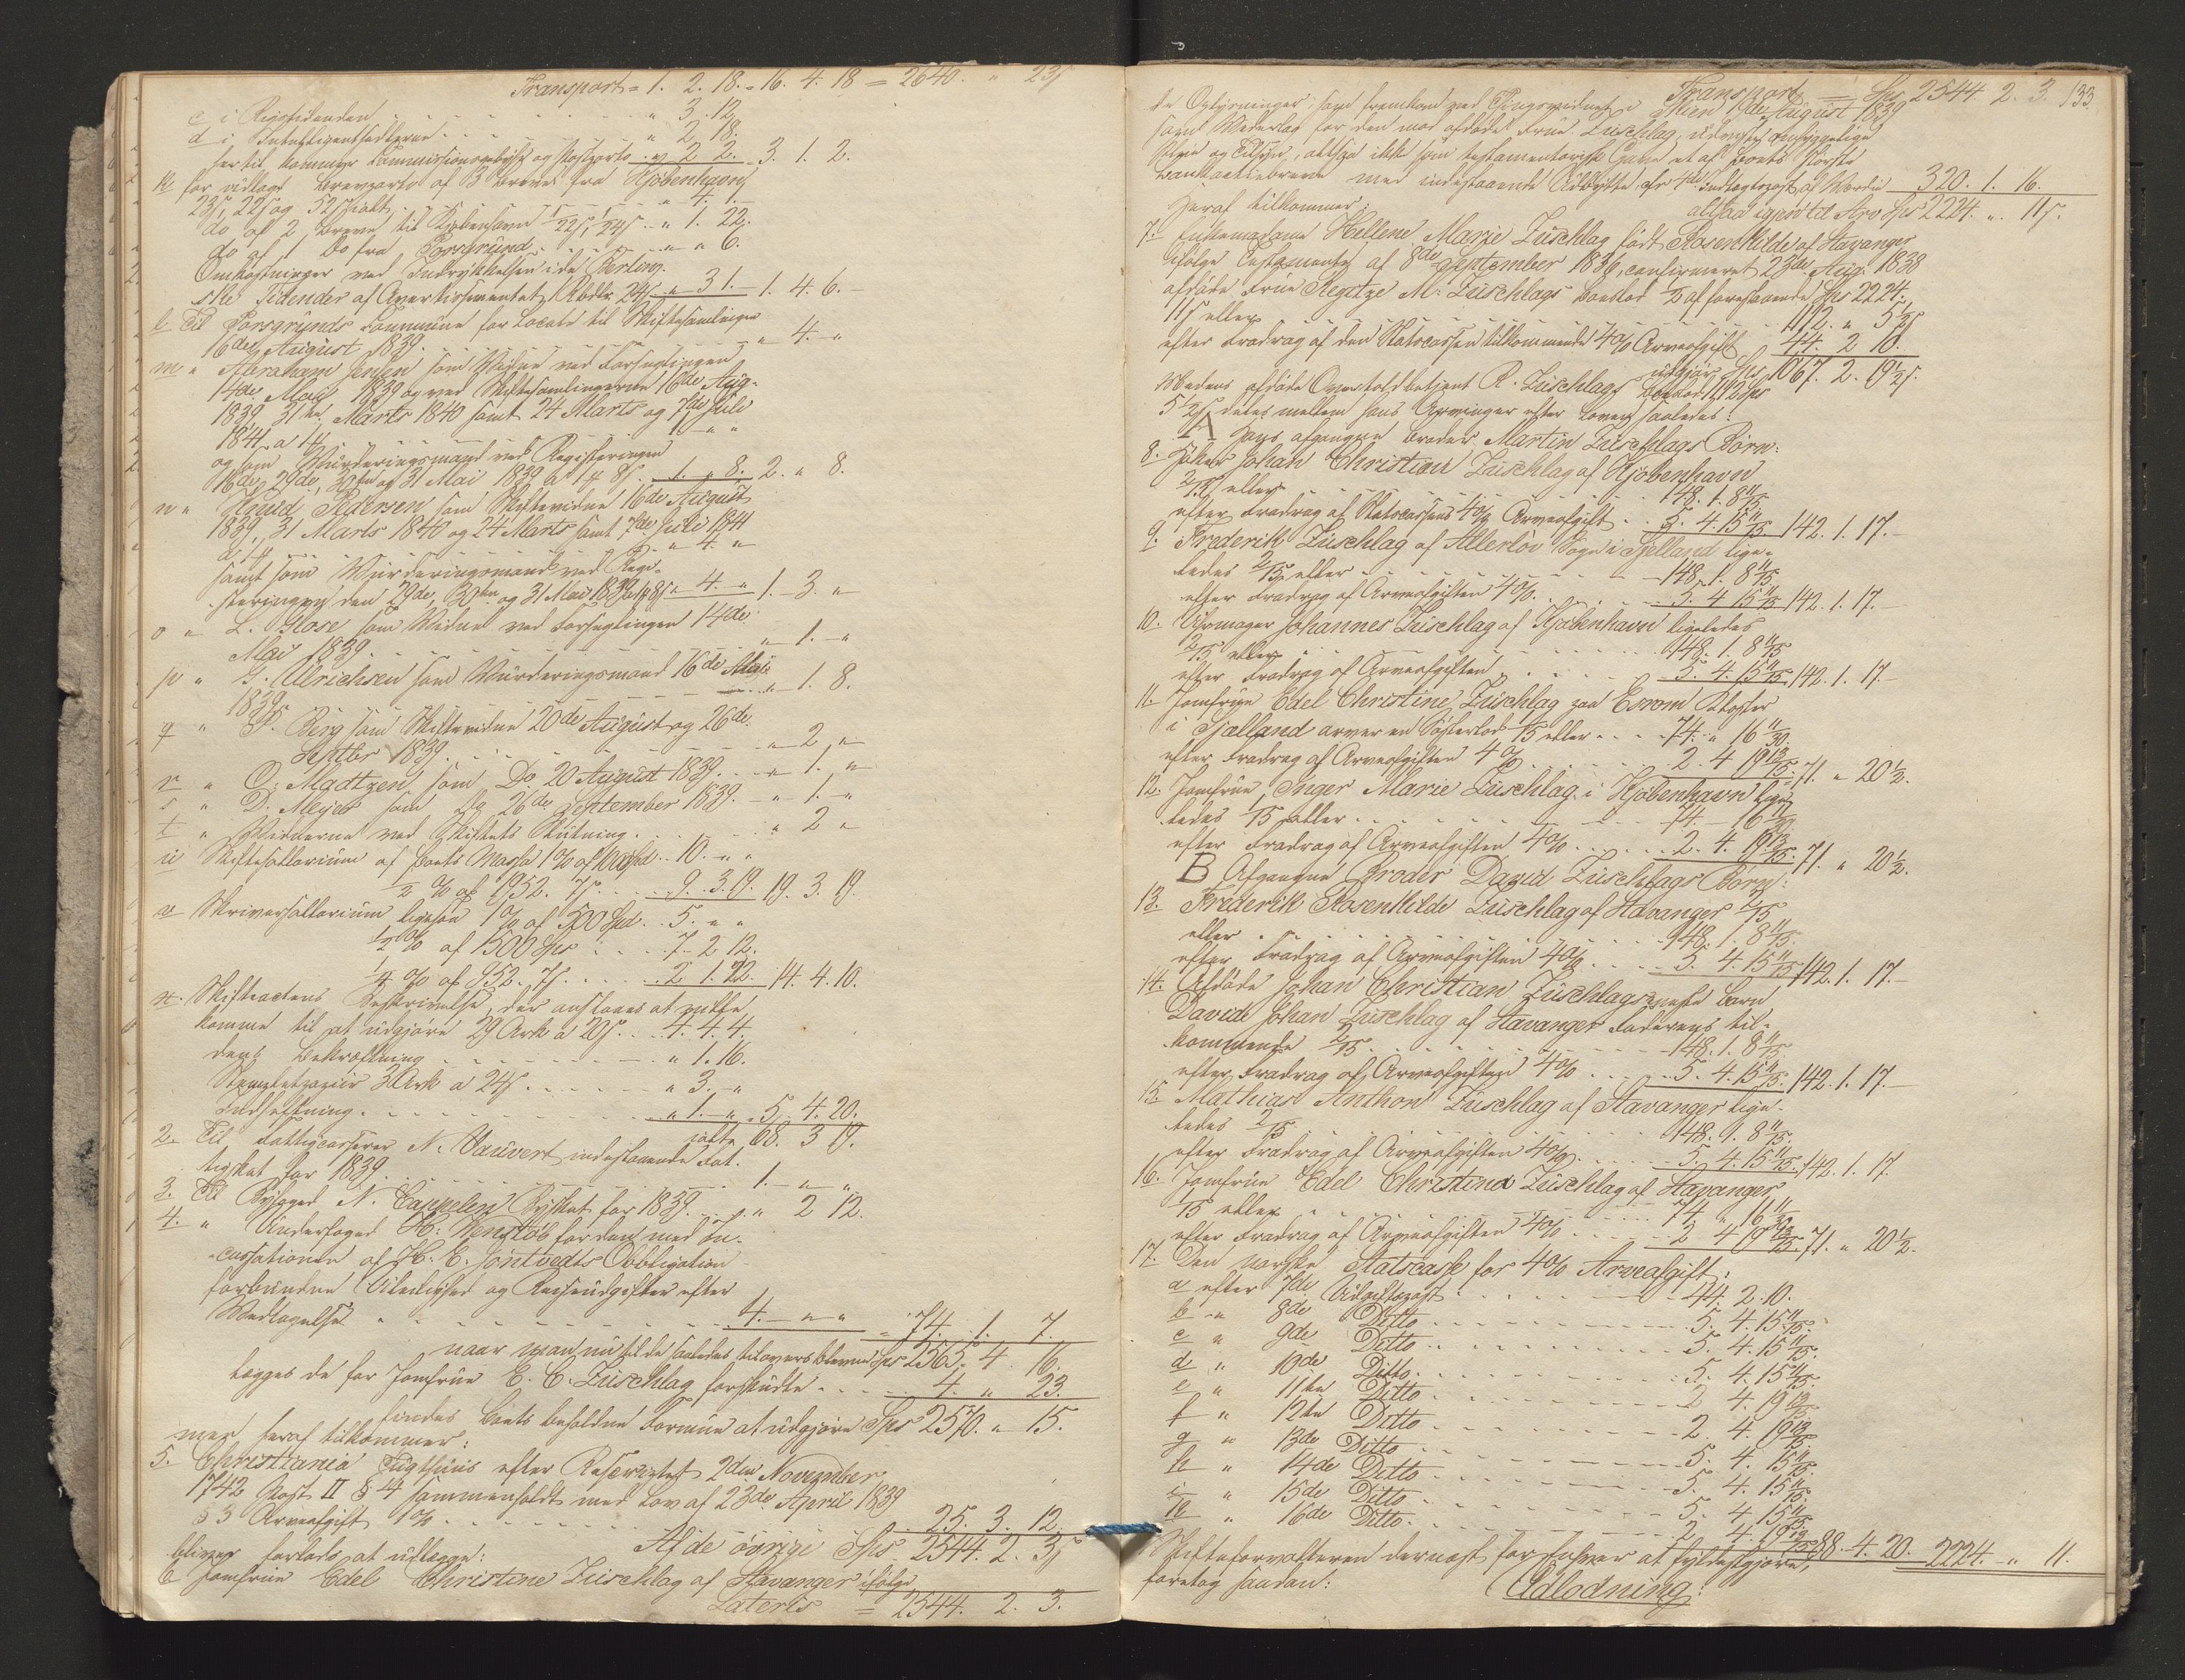 Transport = 1. 2. 18. = 16. 4. 18 = 2640. " 23ſ
c i Rigstidenden . . . . . " 3. 12.
d i Intelligentssedlerne . . . . . " 2. 18.
hertil kommer Commissionsgebyhr og Postporto " 2 2. 3. 1. 2.
k for udlagt Brevporto af 3 Breve fra Kjøbenhavn
23ſ, 22ſ og 52ſ ialt . . . " 4. 1.
do af 2 Breve til Kjøbenhavn 22ſ, 24ſ " 1. 22.
do af 1 do fra Porsgrund . . . " " 6.
Omkostninger ved Indrykkelsen i de Berling-
ske Tidender af Avertissementet Rbdlr 24ſ " 3 1. — 1. 4. 6. —
l Til Porsgrunds Commune for Locale til Skiftesamlingen
16de August 1839 . . . . . " 4. "
m " Abraham Jensen som Vidne ved Forseglingen
14de Mai 1839 og ved Skiftesamlingerne 16de Aug.
1839, 31te Marts 1840 samt 24 Marts og 7de Juli
1841 a 1 . . . . " "
og som Vurderingsmand ved Registeringen
16de, 29de, 30te og 31 Mai 1839 a 1 8ſ . 1. " 8. 2. " 8.
n " Knud Pedersen som Skiftevidne 16de August
1839, 31 Marts 1840 og 24 Marts samt 7de Juli 1841
a 1 . . . " 4. "
samt som Vurderingsmand ved Regi-
steringen den 29de, 30te og 31 Mai 1839 a 8ſ " 4. " 1. 3. "
o " L. Glose som Vidne ved Forseglingen 14de
Mai 1839 . . . . . " 1. "
p " G. Ulrichsen som Vurderingsmand 16de Mai
1839 . . . . . " 1. 8.
q " P. Berg som Skiftevidne 20de August og 26de
Septbr 1839 . . . . . " 2 "
r " O. Madtzen som Do 20 August 1839 . . " 1. "
s " D. Meyer som do 26de September 1839. — " 1. "
t " Vidnerne ved Skiftets Slutning . . . . " 2 "
u Skiftesallarium af Boets Masse 1% af 1000 Spd . . 10. " "
1/2 % af 1952. 7ſ . . . . 9. 3. 19. 19. 3. 19.
v Skriversallarium ligesaa 1% af 500 Spd . . 5. " "
1/2 % af 1500 Sps . . . 7. 2 12.
1/4 % af 952. 7ſ . . . . 2 1. 22. 14. 4. 10.
x. Skifteactens Beskrivelse, der ansees at ville
komme til at udgjøre 29 Ark a 20ſ . . 4. 4. 4.
dens Bekræftning . . . . . " 1. 16.
Stemplet papiir 3 Ark a 24ſ . . . . " 3. "
Indheftning . . . . . " 1. " 5. 4. 20.
ialt 68. 3 19.
2. Til Fattigcasserer N. Vauvert indestaaende Fat-
tigskat for 1839 . . . . . 1. " "
3. Til Byfoged N. Cappelen Byskat for 1839 . . " 2 12.
4. " Underfoged H. Venstøb for den med In-
cassationen af H. E. Jöntvedts Obligation
forbundne Uleilighed og Reiseudgifter efter
Vedtagelse . . . . . 4. " " = 74. 1. 7.
naar man nu til de saaledes tilovers blevne Sps 2565. 4. 16.
lægges de for Jomfrue E. C. Züschlag forskudte . . . . 4. " 23.
findes Boets beholdne Formue at udgjøre Sps 2570. " 15.
men heraf tilkommer:
5. Christiania Tugthuus efter Rescriptet 2den November
1742 Post II § 4 sammenholdt med Lov af 23de April 1839
§ 3 Arveafgift 1% . . . . . 25. 3. 12.
Af de øvrige Sps 2544. 2. 3ſ
bliver forlods at udlægge:
6 Jomfrue Edel Christine Züschlag af Stavanger ifølge
Lateris = 2544. 2. 3.
133.
Transport = Sps 2544. 2. 3.
de Oplysninger, som fremkom ved Thingsvidnet i Skien 1ste August 1839
samt Vederlag for den mod afdøde Frue Züschlag, udviiste omhyggelige
Pleie og Tilsyn, altsaa ikke som testamentarisk Gave et af Boets største
Bankactiebreve med indestaaende Udbytte efter 4de Indtægtspost af Værdie 320. 1. 16.
altsaa igjen til Arv Sps 2224. " 11ſ.
Heraf tilkommer:
7. Enkemadame Hellene Marie Züschlag født Rosenkilde af Stavanger
ifølge Testamentet af 8de September 1836, confirmeret 23de Aug. 1838
afdøde Frue Regitze M. Züschlags Boeslod 1/2 af forestaaende Sps 2224.
11ſ eller . . . . . 1112. " 5 1/2ſ
efter Fradrag af den Statscassen tilkommende 4% Arveafgift 44. 2 10.
udgjør Sps 1067. 2. 19 1/2ſ.
Medens afdøde Overtoldbetjent R. Züschlags Boeslod 1112 Sps
5 1/2ſ deles mellem hans Arvinger efter Loven saaledes:
A Hans afgangne Broder Martin Züschlags Børn:
8. Høker Johan Christian Züschlag af Kjøbenhavn
2/15 eller . . . . . 148. 1. 8 11/15.
efter Fradrag af Statscassens 4% Arveafgift . . 5. 4. 15 11/15. 142. 1. 17. —
9. Frederik Züschlag af Allerløv Sogn i Sjelland lige-
ledes 2/15 eller . . . . . 148. 1. 8 11/15.
efter Fradrag af Arveafgiften 4% . . . . 5. 4 15 11/15 142. 1. 17. —
10. Uhrmager Johannes Züschlag af Kjøbenhavn ligeledes
2/15 eller . . . . . 148. 1. 8 11/15
efter Fradrag af Arveafgiften . . . . 5. 4. 15 11/15 142. 1. 17. —
11. Jomfrue Edel Christine Züschlag paa Esrom Kloster
i Sjælland arver en Søsterlod 1/15 eller . . . . 74. " 16 11/30.
efter Fradrag af Arveafgiften 4% . . . . 2. 4 19 13/15. 71. " 20 1/2.
12. Jomfrue Inger Marie Züschlag i Kjøbenhavn lige-
ledes 1/15 eller . . . . . 74 — 16 11/30
efter Fradrag af Arveafgiften 4% . . . . 2. 4. 19 13/15. 71. " 20 1/2.
B Afgangne Broder David Züschlags Børn:
13. Frederik Rosenkilde Züschlag af Stavanger 2/15
eller . . . . . 148. 1. 8 11/15.
efter Fradrag af Arveafgiften 4% . . . . 5. 4. 15 11/15 142. 1. 17 —
14. Afdøde Johan Christian Züschlags eneste Barn
David Johan Züschlag af Stavanger Faderens til-
kommende 2/15 . . . . . 148. 1. 8 11/15.
efter Fradrag af Arveafgiften 4% . . . . 5. 4. 15 11/15. 142. 1. 17. —
15. Mathias Anthon Züschlag af Stavanger lige-
ledes 2/15 . . . . . 148. 1. 8 11/15.
efter Fradrag af Arveafgiften 4% . . . . 5. 4. 15 11/15. 142. 1. 17.
16. Jomfrue Edel Christina Züschlag af Stavanger
1/15 eller . . . . . 74 " 16 11/30
efter Fradrag af Arveafgiften 4% . . . . 2 4 19 13/15 71. " 20 1/2.
17. Den norske Statscasse for 4% Arveafgift:
a efter 7de Udgiftspost . . . . . 44. 2. 10.
b " 8de Ditto . . . . . 5. 4. 15 11/15.
c " 9de Ditto . . . . . 5. 4. 15 11/15.
d " 10de Ditto . . . . . 5. 4. 15 11/15.
e " 11te Ditto . . . . . 2 4. 19 13/15
f " 12te Ditto . . . . . 2. 4. 19 13/15
g " 13de Ditto . . . . . 5. 4. 15 11/15.
h " 14de Ditto . . . . . 5. 4. 15 11/15.
i " 15de Ditto . . . . . 5. 4 15 11/15
k " 16de Ditto . . . . . 2 4. 19 13/15 88. 4. 20. 2224. " 11.
Skifteforvalteren dernæst for Enhver at fyldestgjøre,
foretog saadan:
Udlodning: